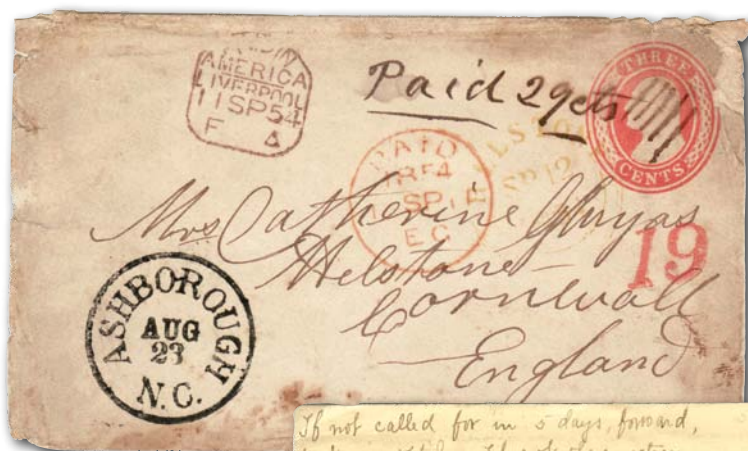 AMERICA
LIVERPOOL
11SP54
F A
Paid 29cts
THREE
CENTS
PAID
SP
E.C
SP 12
19
Mrs Catherine Gluyas
Helstone
Cornwall
England
ASHBOROUGH
AUG
23
N.C.
If not called for in 5 days, forward,